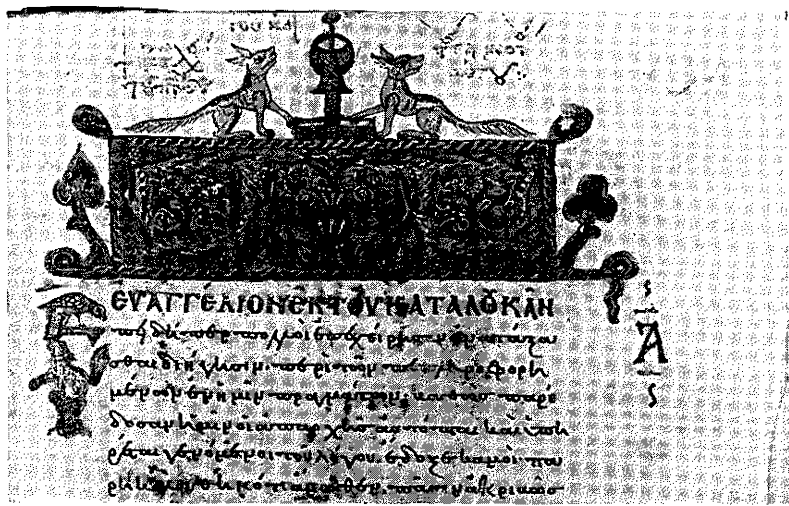 ΕΥΑΓΓΕΛΙΟΝ ΕΚ ΤΟΥ ΚΑΤΑ ΛΟΥΚΑΝ
Ἐπειδήπερ πολλοὶ ἐπεχείρησαν ἀνατάξα
σθαι διήγησιν περὶ τῶν πεπληροφορη
μένων ἐν ἡμῖν πραγμάτων, καθὼς παρέ
δοσαν ἡμῖν οἱ ἀπ' ἀρχῆς αὐτόπται καὶ ὑπη
ρέται γενόμενοι τοῦ λόγου, ἔδοξε κἀμοὶ πα
ρηκολουθηκότι ἄνωθεν πᾶσιν ἀκριβῶς
Α